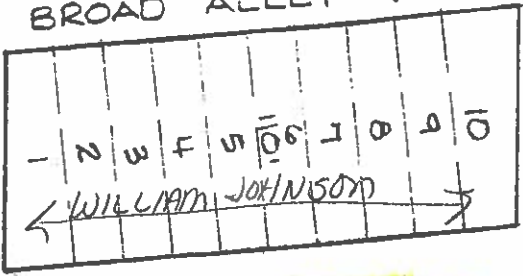 BROAD ALLEY
1 2 3 4 5 10 6 7 8 9 10
WILLIAM JOHNSON